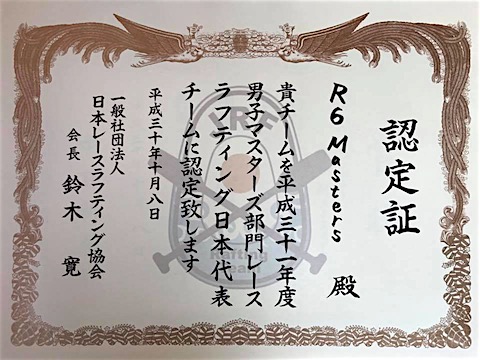 認定証
R6 Masters 殿
貴チームを平成三十一年度
男子マスターズ部門レース
ラフティング日本代表
チームに認定致します
平成三十年十月八日
一般社団法人
日本レースラフティング協会
会長 鈴木 寛
JRF
Rafting